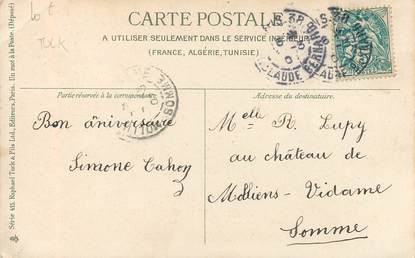 Lot
TUCK
CARTE POSTALE
A UTILISER SEULEMENT DANS LE SERVICE INTÉRIEUR
(FRANCE, ALGÉRIE, TUNISIE)
Partie réservée à la correspondance
Adresse du destinataire.
Bon anniversaire
Simone Cahon
Melle R. Lupy
au château de
Molliens-Vidame
Somme
Série 415. Raphael Tuck & Fils Ltd, Editeurs, Paris. Un mot à la Poste. (Déposé)